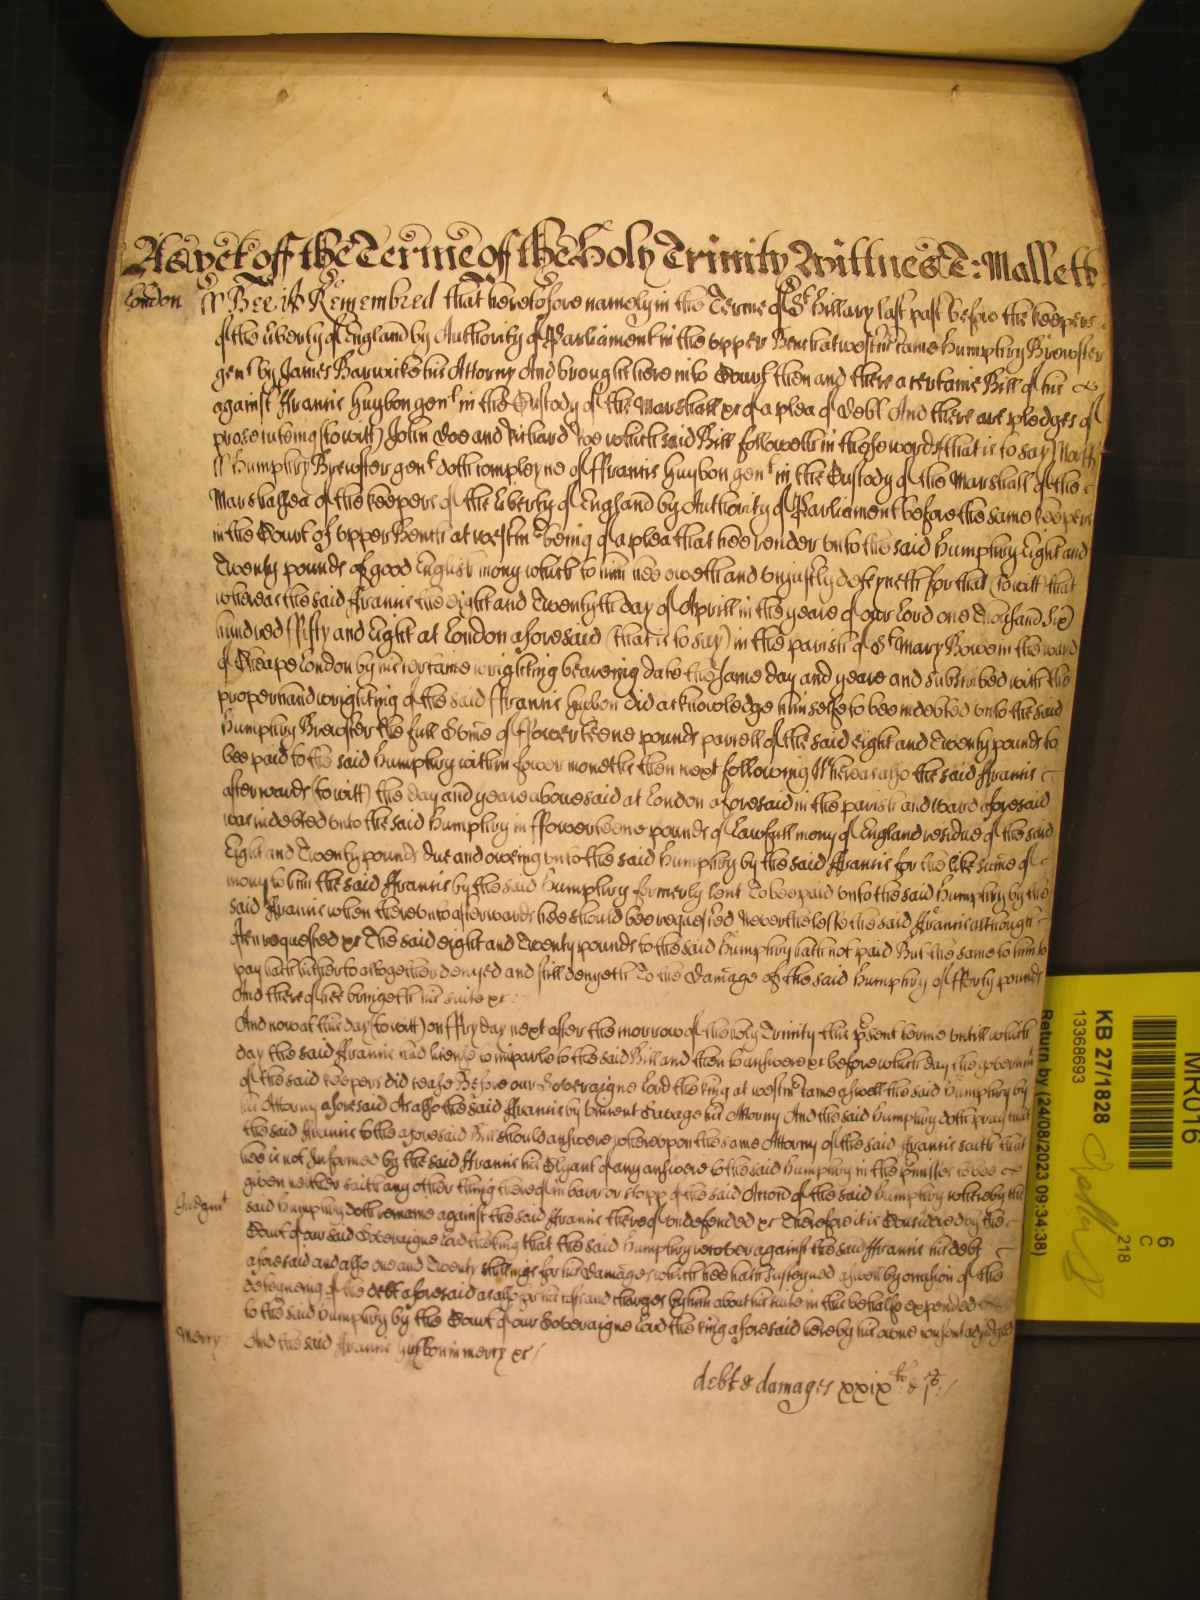 As yet of the Terme of the Holy Trinity Wittnes T: Mallett
London ss Bee it Remembred that heretofore namely in the Terme of St Hillary last past before the keepers
of the liberty of England by Authority of Parliament in the upper Bench at westmr came Humphry Brewster
gent by James Barwicke his Attorny And brought here into Court then and there a certaine Bill of his
against ffrancis Huybon gent in the Custody of the Marshall &c of a plea of debt And there are pledges of
prosecuteing (to witt) John Doe and Richard Roe which said Bill followeth in these words that is to say
ss Humphry Brewster gent doth compleyne of ffrancis Huybon gent in the Custody of the Marshall of the
Marshalsea of the keepers of the liberty of England by Authority of Parliament before the same keepers
in the Court of upper Bench at westmr being of a plea that hee render unto the said Humphry Eight and
Twenty pounds of good English mony which to him hee oweth and unjustly deteyneth for that (to witt) that
whereas the said ffrancis the eight and Twentyth day of Aprill in the yeare of our lord one Thousand Six
hundred ffifty and Eight at London aforesaid (that is to say) in the parish of St Mary Bowe in the ward
of Cheape London by his certaine wrighting beareing date the same day and yeare and subscribed with the
proper hand wrighting of the said ffrancis Huybon did acknowledge himselfe to bee indebted unto the said
Humphry Brewster the full Sume of ffowerteene pounds parcell of the said eight and Twenty pounds to
bee paid to the said Humphry within fower moneths then next following Whereas also the said ffrancis
afterwards (to witt) the day and yeare abovesaid at London aforesaid in the parish and ward aforesaid
was indebted unto the said Humphry in ffowerteene pounds of lawfull mony of England residue of the said
Eight and Twenty pounds due and oweing unto the said Humphry by the said ffrancis for the like sume of
mony to him the said ffrancis by the said Humphry formerly lent To bee paid unto the said Humphry by the
said ffrancis when thereunto afterwards hee should bee requested Neverthelesse the said ffrancis although
often requested &c The said eight and Twenty pounds to the said Humphry hath not paid But the same to him to
pay hath hitherto altogether denyed and still denyeth To the damage of the said Humphry of fforty pounds
And thereof hee bringeth his suite &c
And now at this day (to witt) on ffryday next after the morrow of the holy Trinity this psent terme untill which
day the said ffrancis had licence to imparle to the said Bill and then to answere &c before which day the governmt
of the said keepers did cease Before our Soveraigne lord the king at westmr came aswell the said Humphry by
his Attorny aforesaid As also the said ffrancis by Vincent Savage his Attorny And the said Humphry doth pray that
the said ffrancis to the aforesaid Bill should answere whereupon the same Attorny of the said ffrancis saith that
hee is not Informed by the said ffrancis his Clyant of any answere to the said Humphry in the pmisses to bee
given neither saith any other thing thereof in barr or stopp of the said Accon of the said Humphry whereby the
Judgmt said Humphry doth remaine against the said ffrancis thereof undefended &c Therefore it is Considered by the
Court of our said Soveraigne lord the king that the said Humphry recover against the said ffrancis his debt
aforesaid and also one and Twenty shillings for his damages which hee hath susteyned aswell by occasion of the
deteyneing of the debt aforesaid as also for his costs and charges by him about his suite in this behalfe expended
to the said Humphry by the Court of our Soveraigne lord the king aforesaid here by his owne consent adjudged
Mercy And the said ffrancis Huybon in mercy &c
debt & damages xxixli & js
MR016
6
C
218
KB 27/1828
13368693
Return by (24/08/2023 09:34:38)